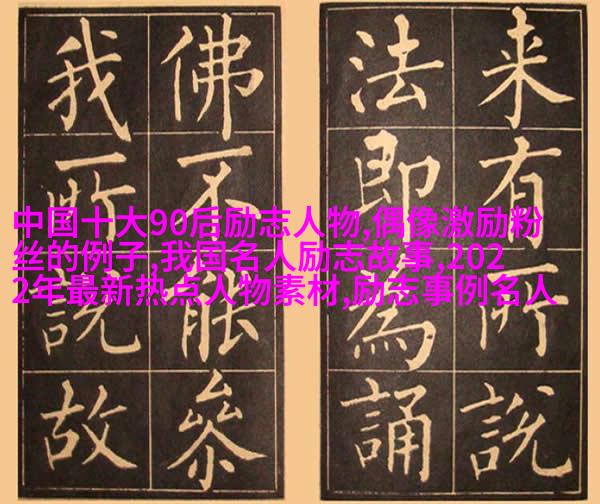 中国十大90后励志人物,偶像激励粉
丝的例子,我国名人励志故事,202
2年最新热点人物素材,励志事例名人
来有所說
法即為誦
佛不能參
我所說故